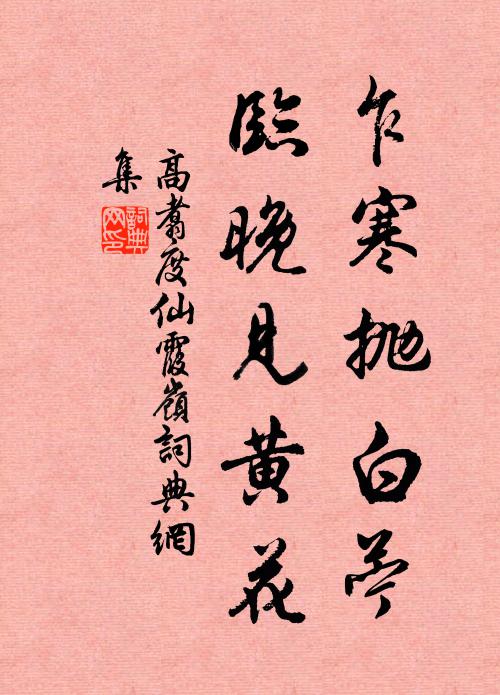 乍寒拋白苧
臨晚見黃花
高翥度仙霞嶺詞典網
集
詞典
网印